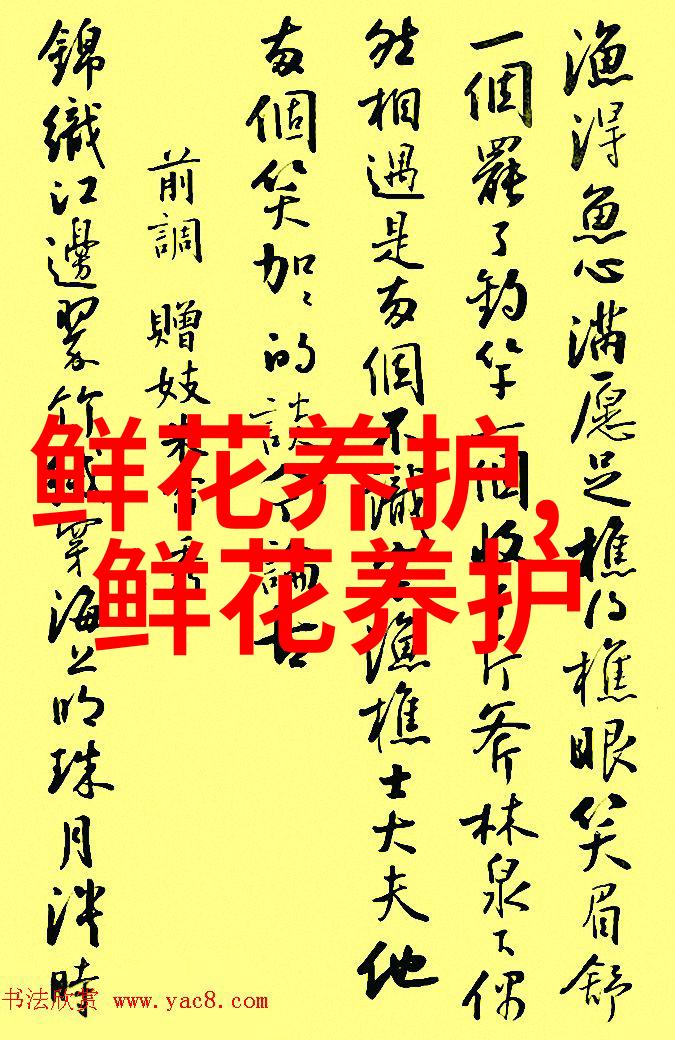 漁得魚心滿愿足樵得樵眼笑眉舒
一個罷了釣竿一個收了斤斧林泉下偶
然相遇是兩個不識字漁樵士大夫他
兩個笑加加的談今論古
前調 贈妓朱簾秀
錦織江邊翠竹絨穿海上明珠月淡時
鲜花养护,
鲜花养护
书法欣赏 www.yac8.com